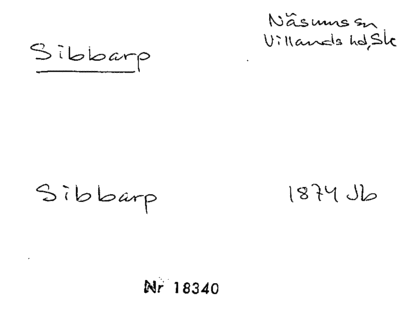 Sibbarp
Näsums sn
Villands hd, Sk
Sibbarp
1874 Jb
Nr 18340